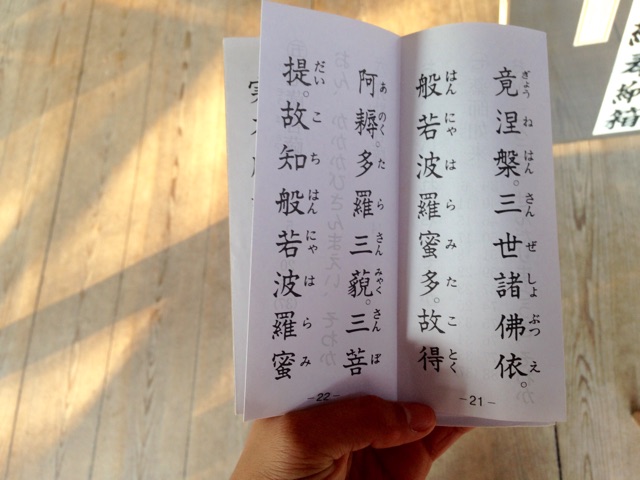 竟涅槃。三世諸佛依。
ぎょう ね はん さん ぜ しょ ぶつ え
般若波羅蜜多。故得
はん にゃ は ら み た こ とく
-21-
阿耨。多羅三藐。三菩
あ のく た ら さん みゃく さん ぼ
提。故知般若波羅蜜
だい こ ち はん にゃ は ら み
-22-